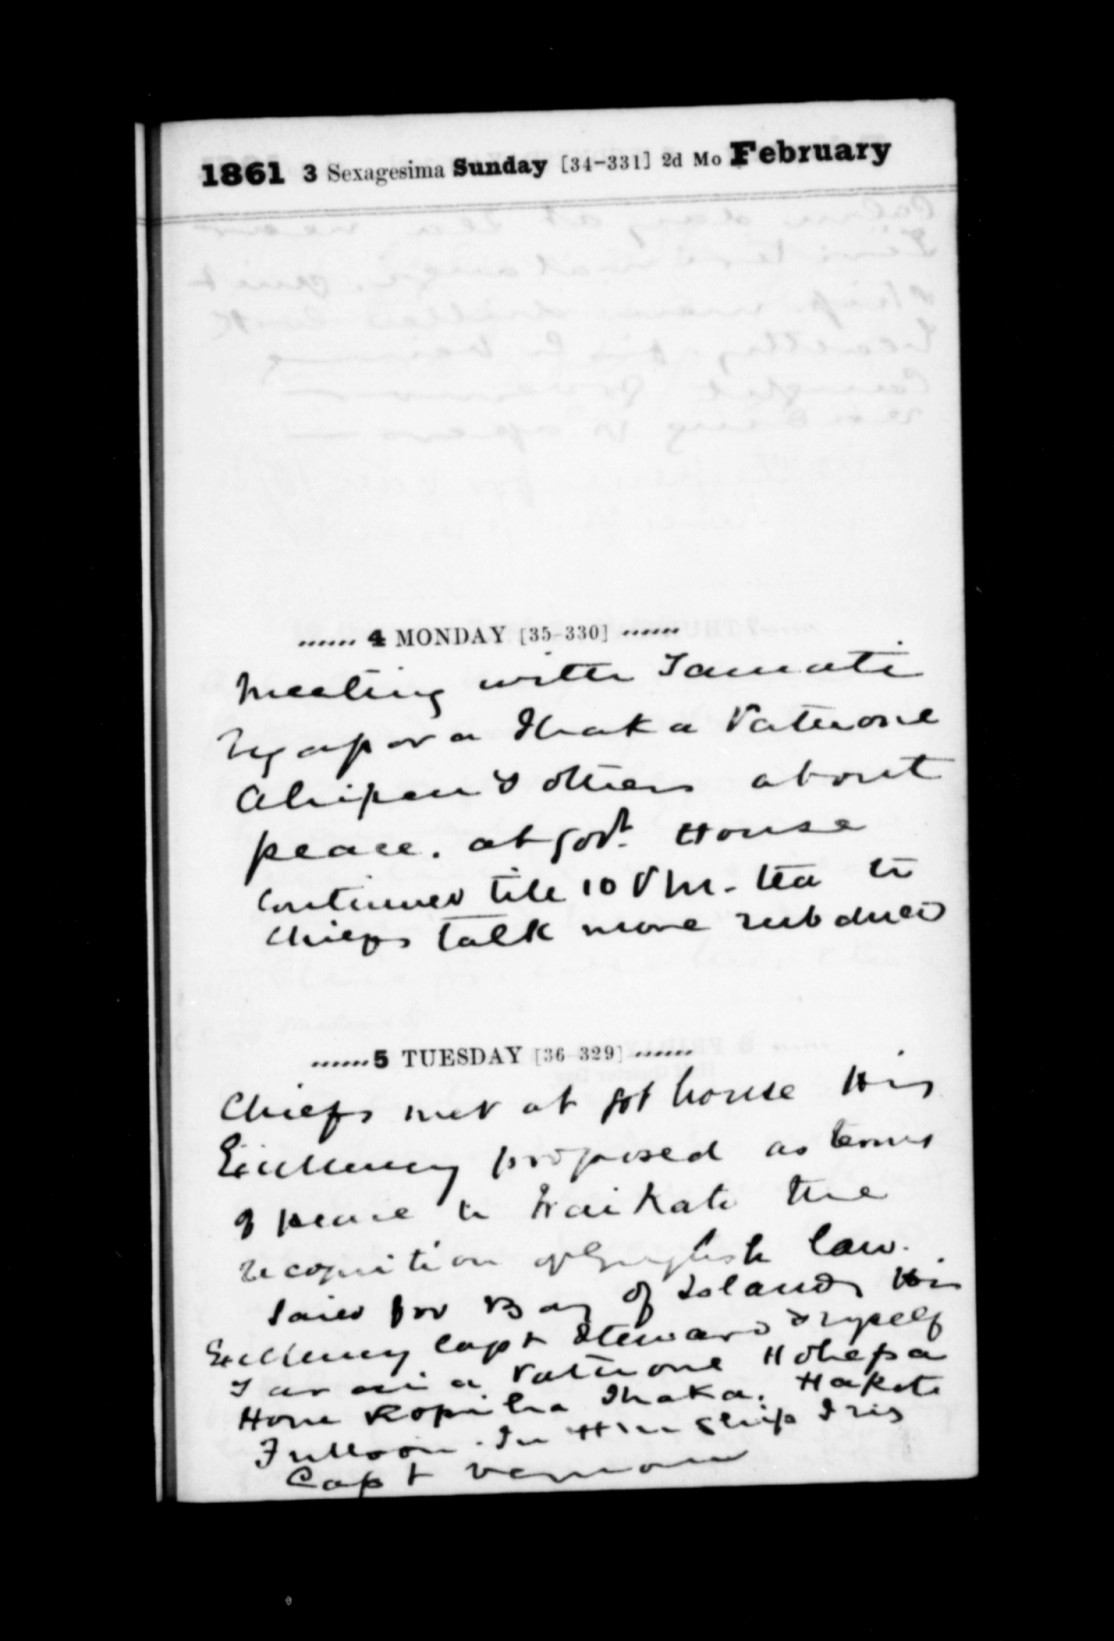 1861 3 Sexagesima Sunday [34-331] 2d Mo February
...... 4 MONDAY [35-330] ......
Meeting with Tamati
Ngapora Ihaka Patuone
& others about
peace. at Govt. House
continued till 10 PM. tea to
chiefs talk more subdued
......5 TUESDAY [36-329]......
Chiefs met at Govt house His
Excellency proposed as terms
of peace to Waikato the
recognition of English law.
Sailed for Bay of Islands His
Excellency Capt Steward & myself
Patuone Hohepa
Hone Ropiha Ihaka.
Fulloon. In HM Ship Iris
Capt